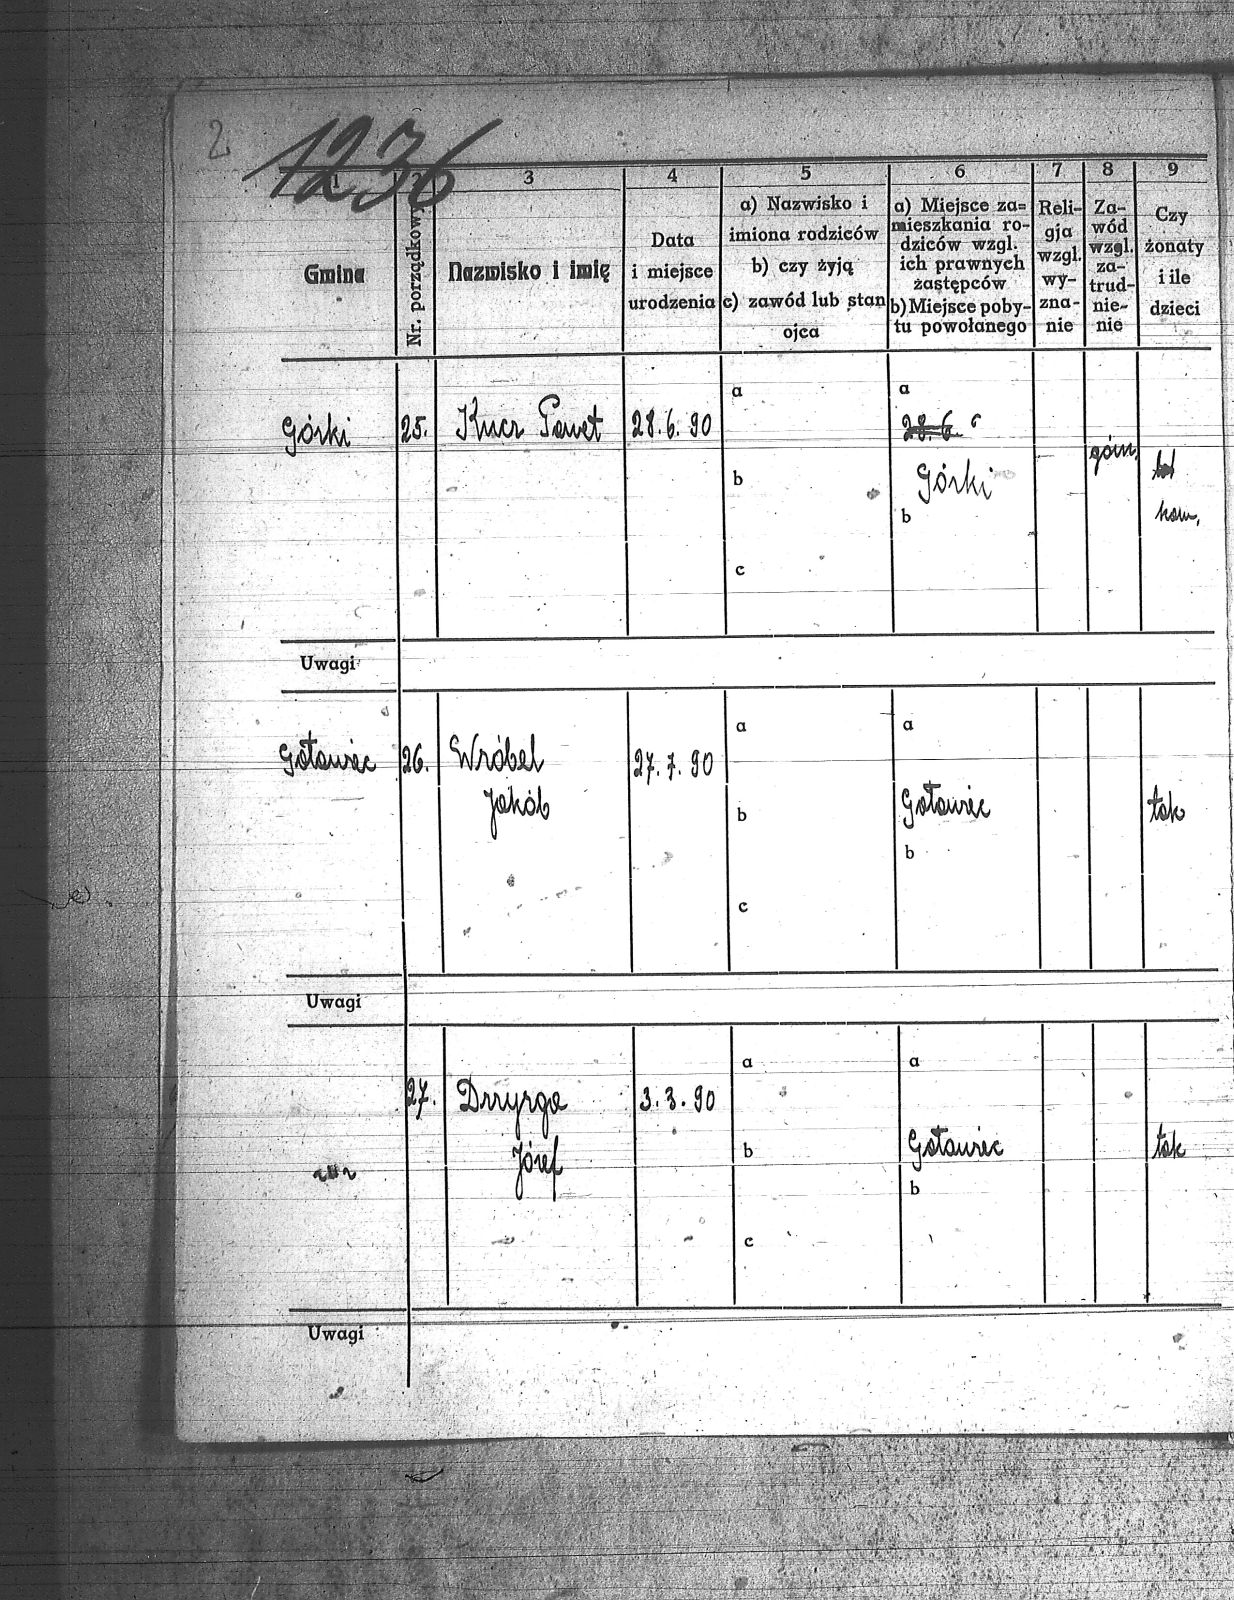 2
1236
1 2 3 4 5 6 7 8 9
Gmina
Nr. porządkowy
Nazwisko i imię
Data
i miejsce
urodzenia
a) Nazwisko i
imiona rodziców
b) czy żyją
c) zawód lub stan
ojca
a) Miejsce za=
mieszkania ro-
dziców wzgl.
ich prawnych
zastępców
b) Miejsce poby-
tu powołanego
Reli-
gja
wzgl.
wy-
zna-
nie
Za-
wód
wzgl.
za-
trud-
nie-
nie
Czy
żonaty
i ile
dzieci
a a
Górki 25. Kucz Paweł 28.6.90 28.6.
górn.
b Górki
b kaw.
c
Uwagi
a a
Gotawiec 26. Wróbel 27.7.90
Jakób b Gotawiec tak
b
c
Uwagi
a a
27. Drzyzga 3.3.90
Józef b Gotawiec tak
b
c
Uwagi